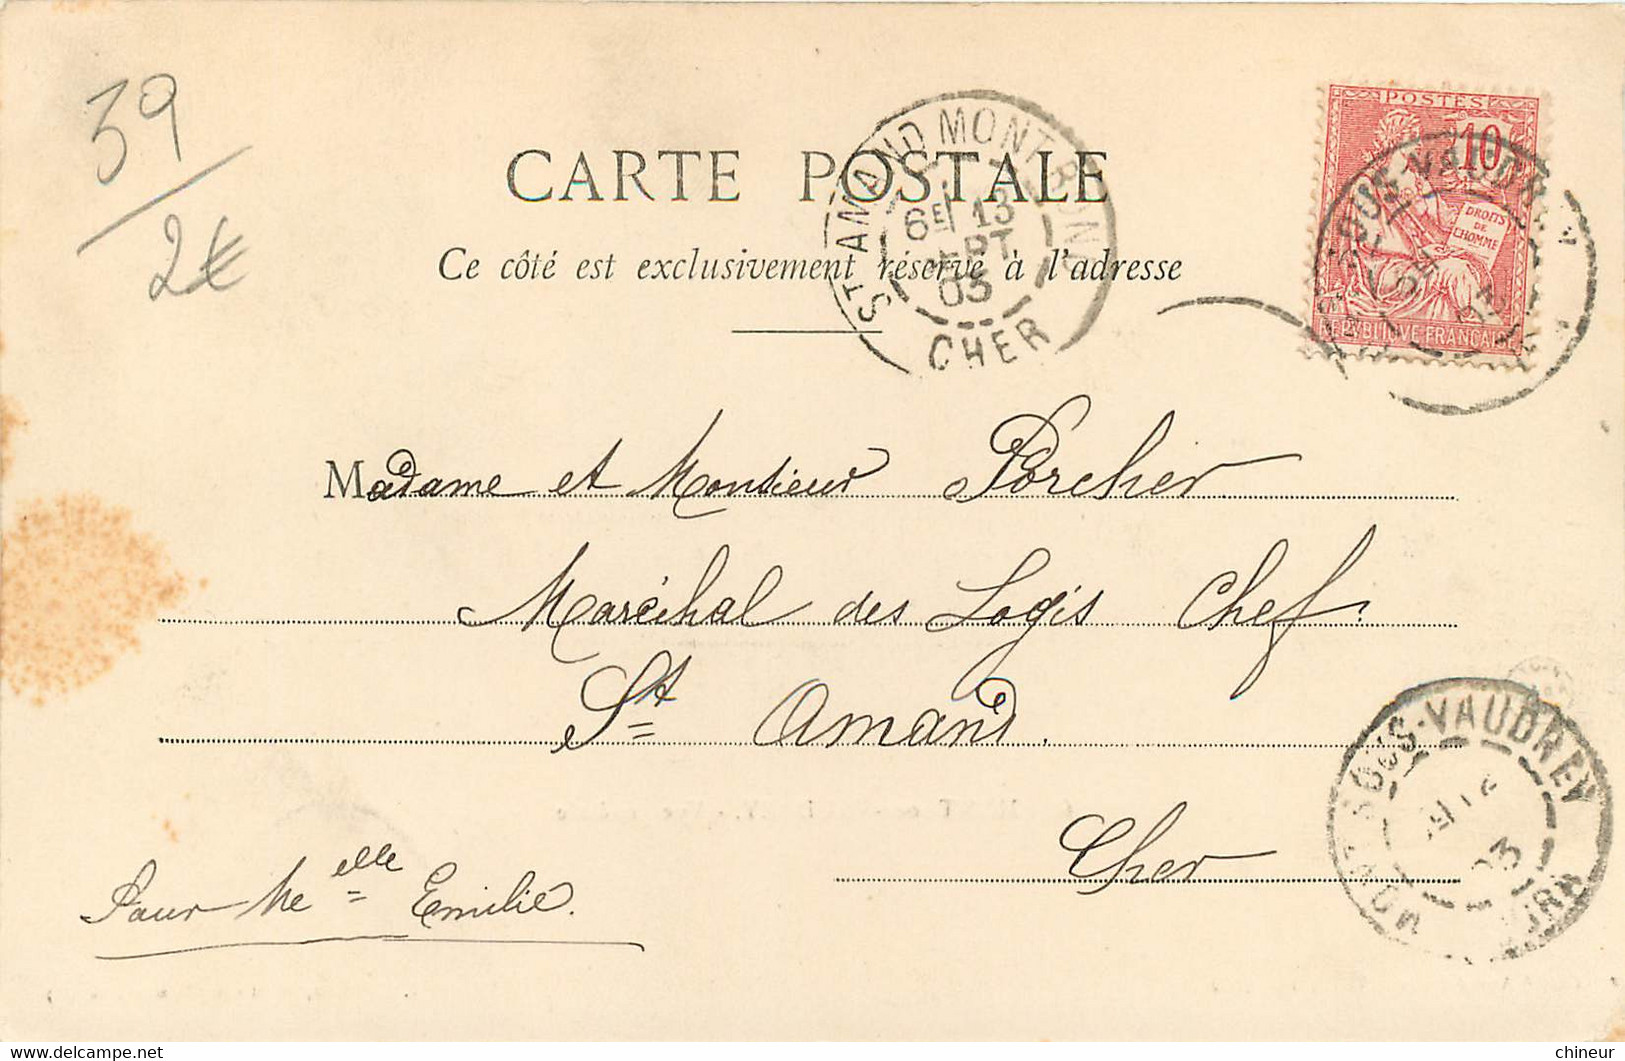 39
2€
CARTE POSTALE
Ce côté est exclusivement réservé à l'adresse
ST AMAND MONT-ROND
6E 13
SEPT
03
CHER
POSTES
10
DROITS
DE
L'HOMME
REPVBLIQVE FRANÇAISE
SOUS-VAUDREY
Madame et Monsieur Porcher
Maréchal des Logis Chef.
St Amand.
Cher
Pour Melle Emilie.
MONT-SOUS-VAUDREY
12
03
JURA
chineur